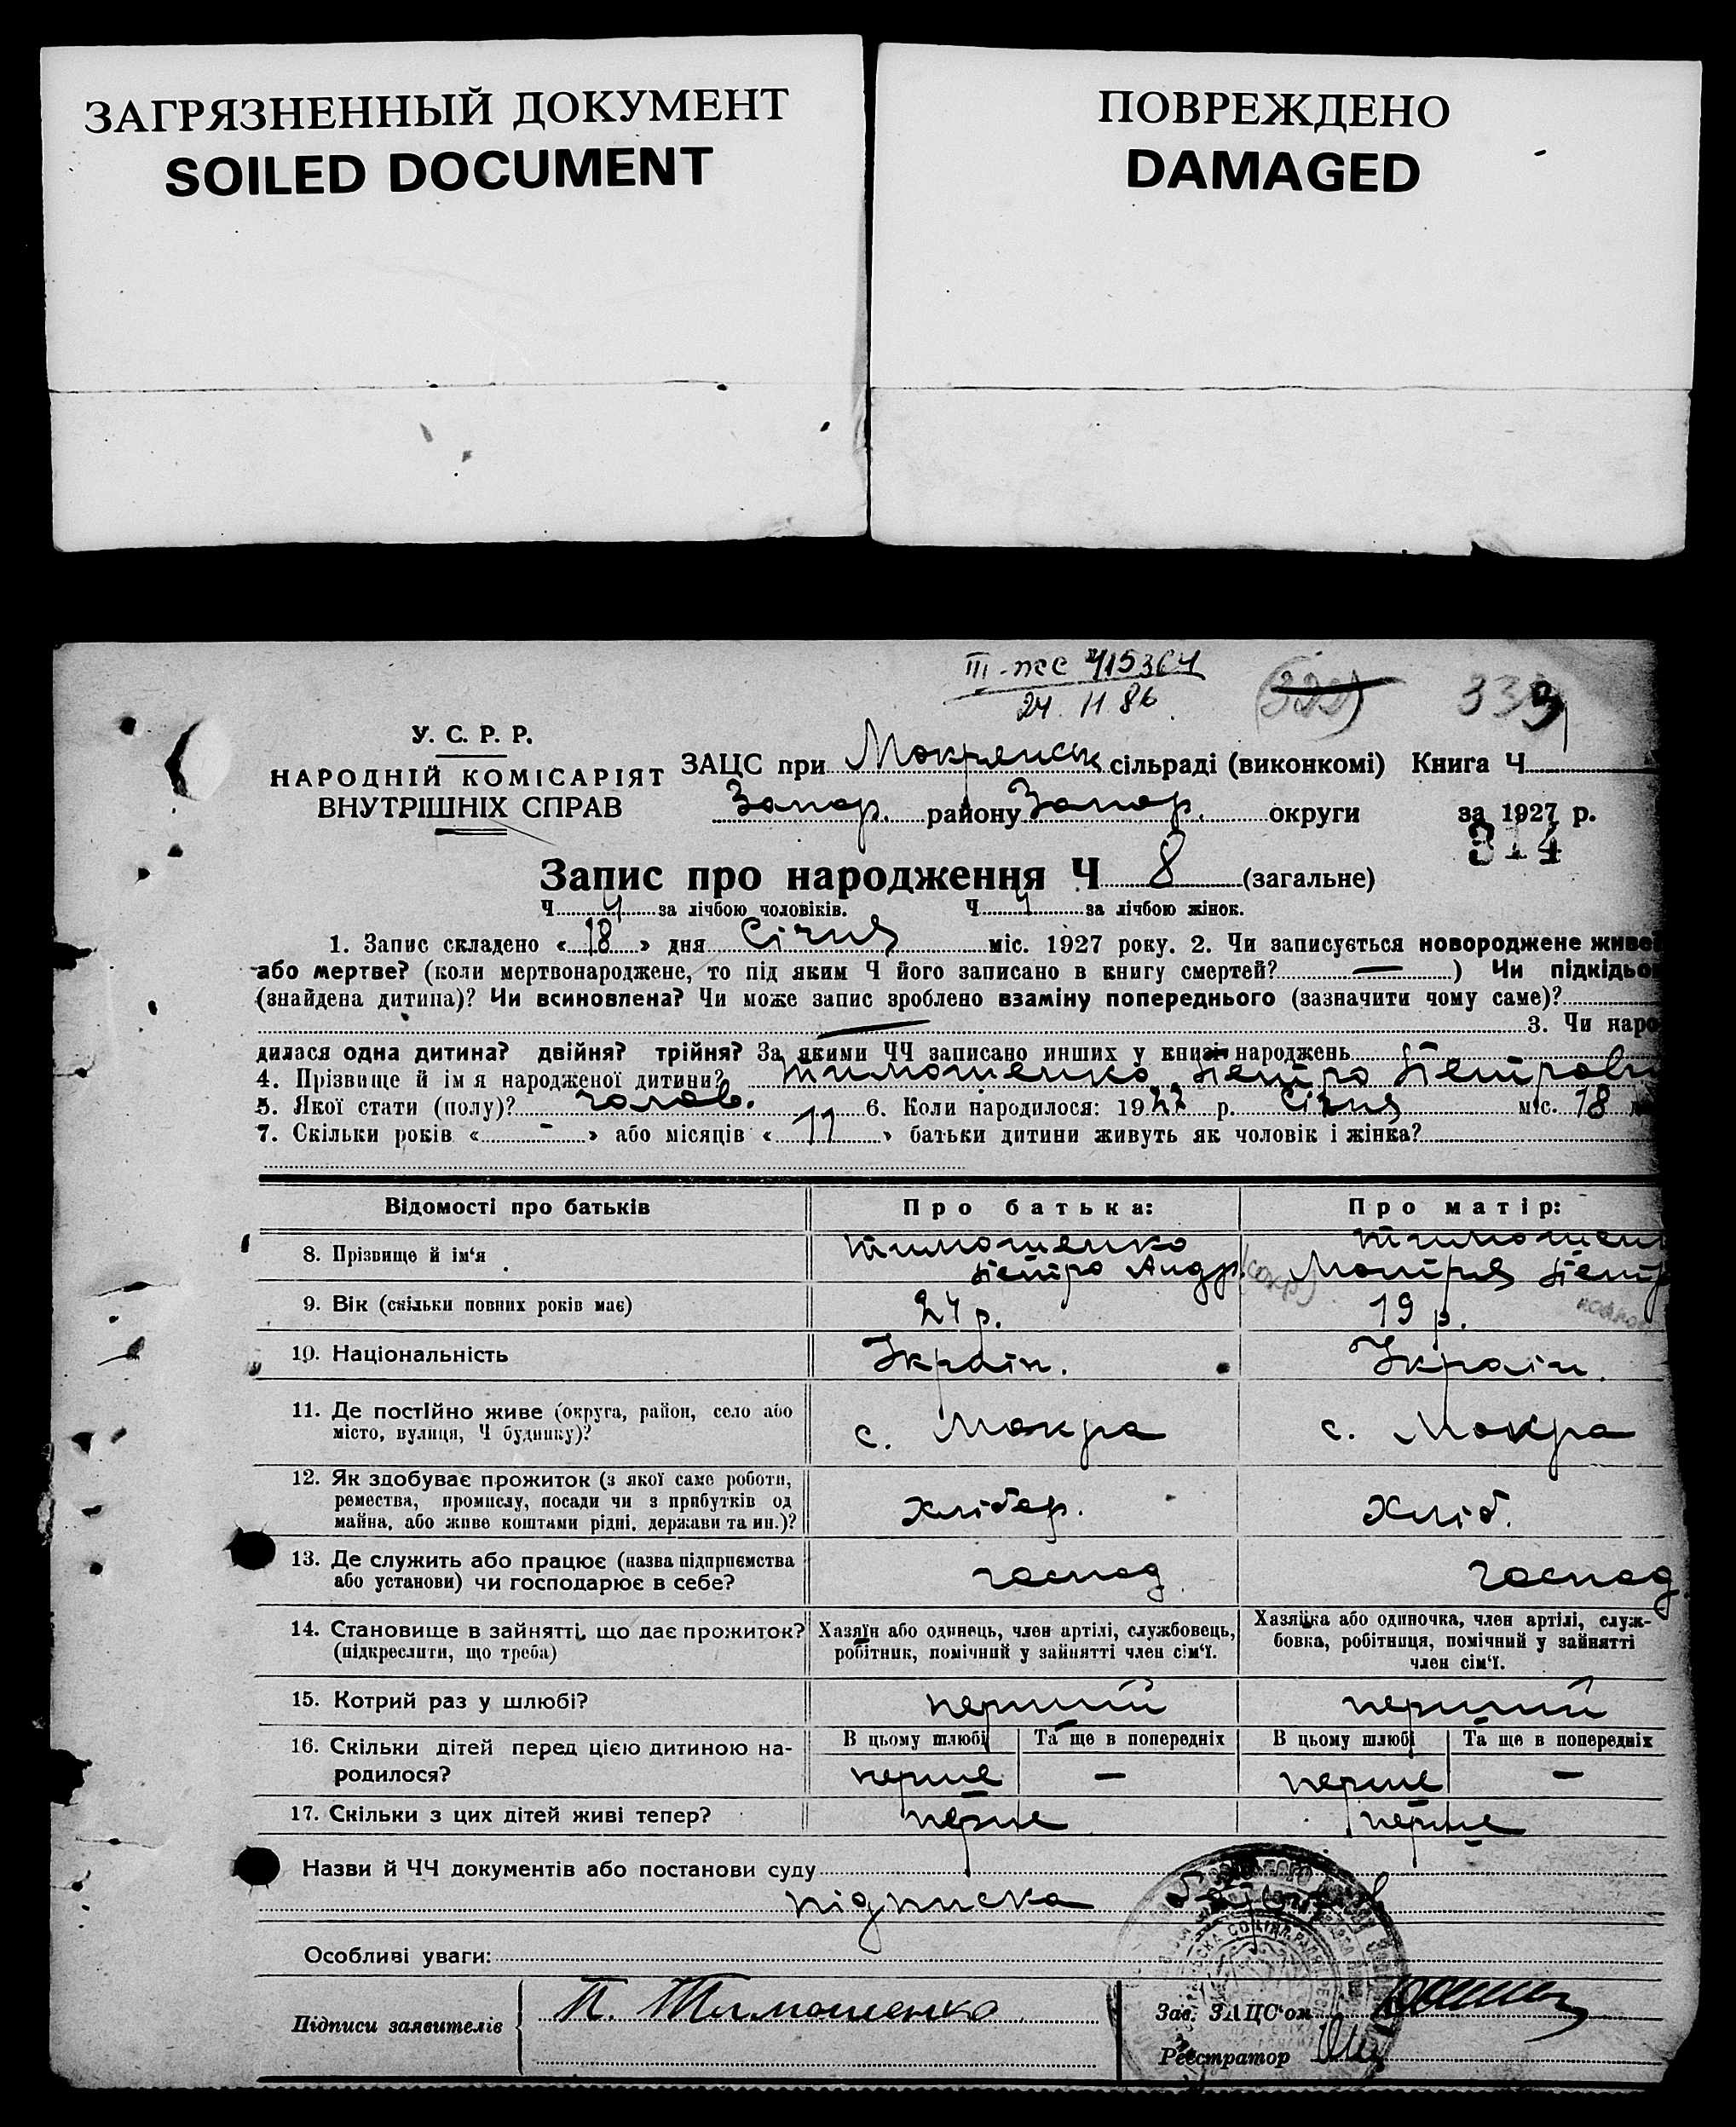 ЗАГРЯЗНЕННЫЙ ДОКУМЕНТ
SOILED DOCUMENT
ПОВРЕЖДЕНО
DAMAGED
24. 11 86
(322) 333
У. С. Р. Р.
НАРОДНІЙ КОМІСАРІЯТ
ВНУТРІШНІХ СПРАВ
ЗАЦС при Мокрянськ сільраді (виконкомі) Книга Ч
Запор. району Запор. округи за 1927 р.
314
Запис про народження Ч 8 (загальне)
Ч 4 за лічбою чоловіків. Ч 4 за лічбою жінок.
1. Запис складено « 18 » дня Січня міс. 1927 року. 2. Чи записується новороджене живе?
або мертве? (коли мертвонароджене, то під яким Ч його записано в книгу смертей? — ) Чи підкідьо
(знайдена дитина)? Чи всиновлена? Чи може запис зроблено взаміну попереднього (зазначити чому саме)?
— 3. Чи наро
дилася одна дитина? двійня? трійня? За якими ЧЧ записано инших у книзі народжень
4. Прізвище й імя народженої дитини? Тимошенко Петро Петрови
5. Якої стати (полу)? чолов. 6. Коли народилося: 1927 р. Січня міс. 18
7. Скільки років « - » або місяців « 11 » батьки дитини живуть як чоловік і жінка?
Відомості про батьків Про батька: Про матір:
8. Прізвище й ім‘я Тимошенко Петро Андр. Тимошен Мотря Петр
9. Вік (скільки повних років має) 24 р. 19 р.
10. Національність Україн. Україн.
11. Де постійно живе (округа, район, село або
місто, вулиця, Ч будинку)? с. Мокра с. Мокра
12. Як здобуває прожиток (з якої саме роботи,
ремества, промислу, посади чи з прибутків од
майна, або живе коштами рідні, держави та ин.)? хлібер. Хліб.
13. Де служить або працює (назва підприємства
або установи) чи господарює в себе? господ. господ.
14. Становище в зайнятті, що дає прожиток?
(підкреслити, що треба)
Хазяїн або одинець, член артілі, службовець,
робітник, помічний у зайнятті член сім‘ї.
Хазяйка або одиночка, член артілі, служ-
бовка, робітниця, помічний у зайнятті
член сім‘ї.
15. Котрий раз у шлюбі? перший перший
16. Скільки дітей перед цією дитиною на-
родилося?
В цьому шлюбі Та ще в попередніх В цьому шлюбі Та ще в попередніх
перше — перше —
17. Скільки з цих дітей живі тепер? перше перше
Назви й ЧЧ документів або постанови суду
підписка
Особливі уваги:
Підписи заявителів П. Тимошенко
Зав. ЗАЦС‘ом
Реєстратор